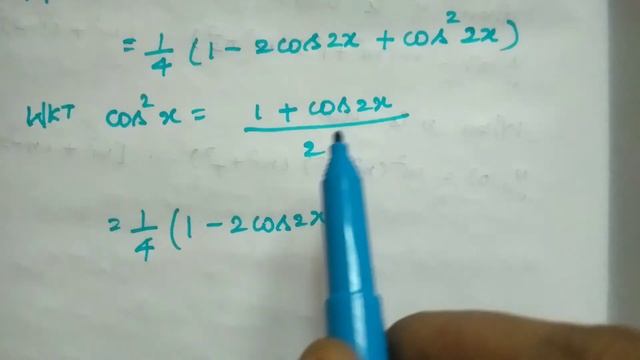 = 1/4 (1 - 2cos2x + cos² 2x)
WKT cos² x = 1 + cos2x / 2
= 1/4 (1 - 2cos2x